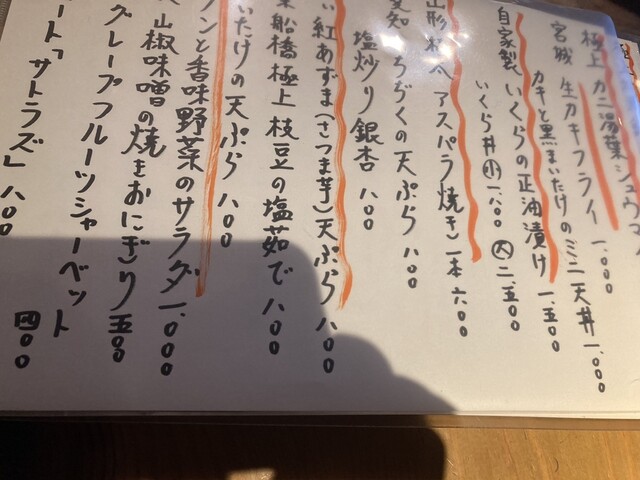 極上 カニ湯葉シュウマイ
宮城 生カキフライ 一、000
カキと黒まいたけのミニ天丼 一、000
自家製 いくらの正油漬け 一、五00
いくら丼 小 一、八00 大 二、五00
山形 アスパラ焼き 一本 六00
愛知 いちぢくの天ぷら 八00
塩炒り銀杏 八00
い 紅あずま(さつま芋)天ぷら 八00
船橋極上 枝豆の塩茹で 八00
いたけの天ぷら 八00
ンと香味野菜のサラダ 一、000
山椒味噌の焼きおにぎり 五00
グレープフルーツシャーベット 四00
ート「サトラズ」 八00